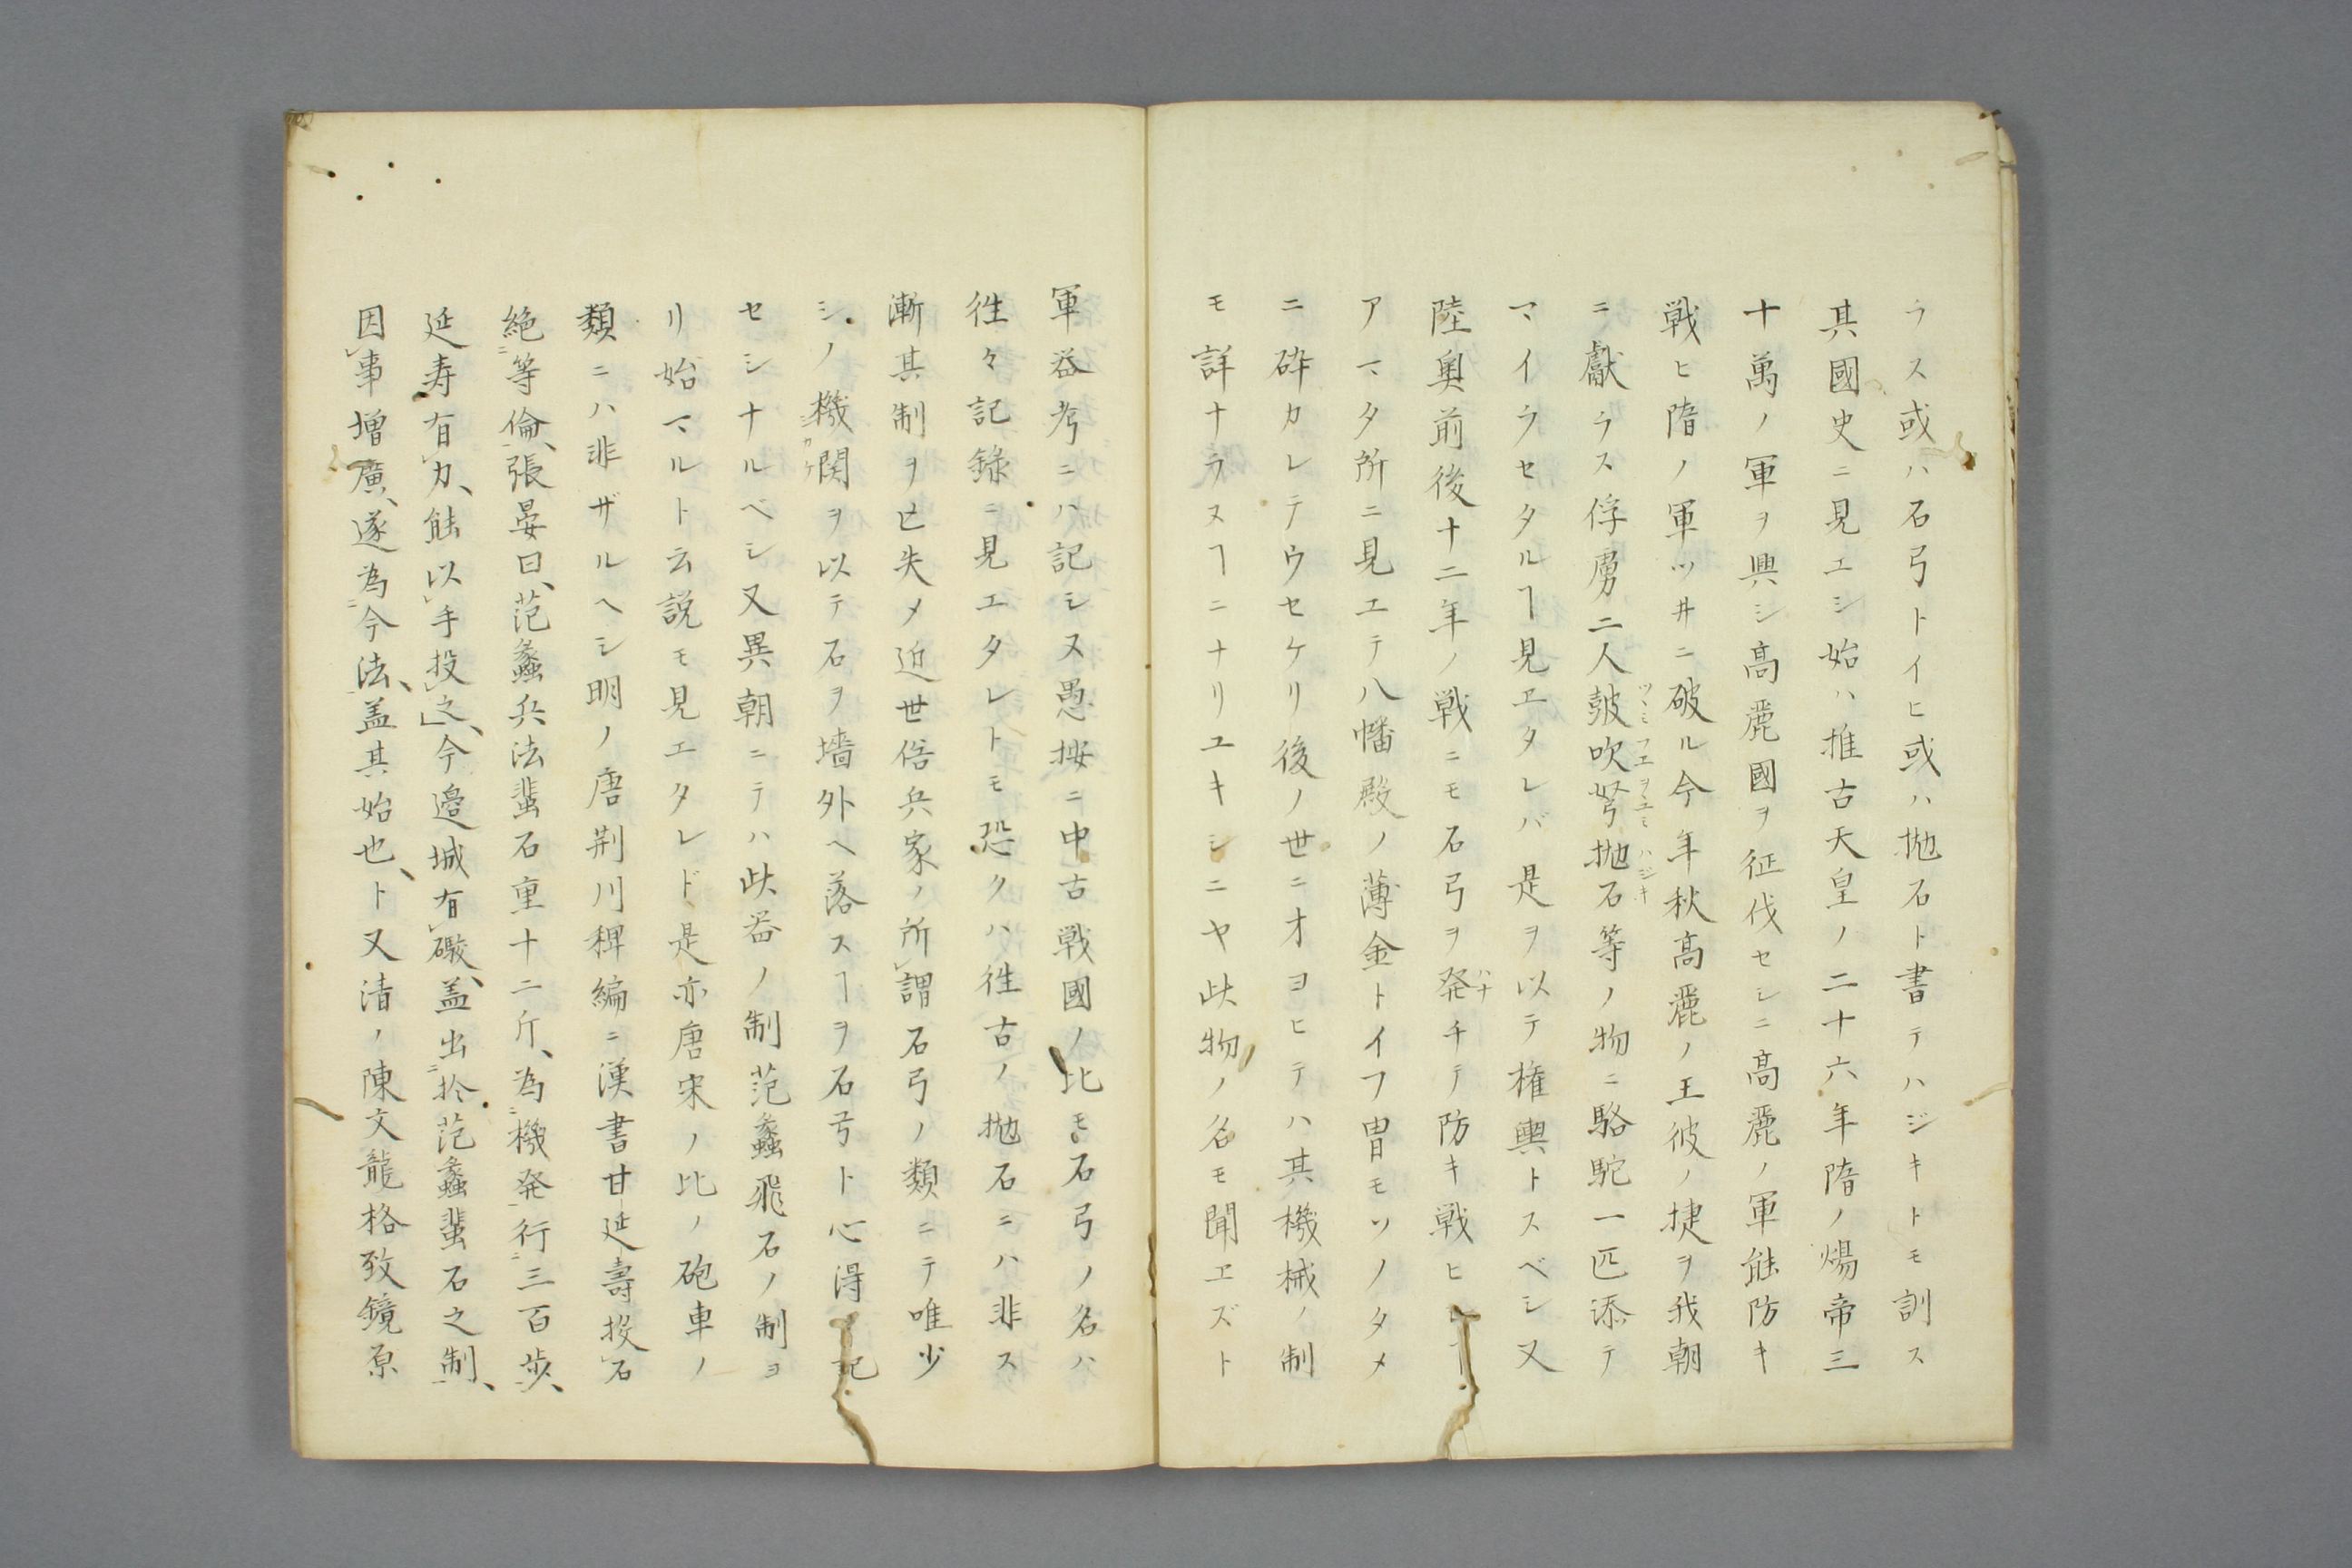 ラス或ハ石弓トイヒ或ハ抛石ト書テハジキトモ訓ス
其國史ニ見エシ始ハ推古天皇ノ二十六年隋ノ煬帝三
十萬ノ軍ヲ興シ髙麗國ヲ征伐セシニ髙麗ノ軍能防キ
戦ヒ隋ノ軍ツ井ニ破ル今年秋髙麗ノ王彼ノ捷ヲ我朝
ニ獻ラス俘虜二人皷吹弩抛石等ノ物ニ駱駝一匹添テ
ツヽミフエヲユミハジキ
マイラセタルヿ見ヱタレバ是ヲ以テ権輿トスベシ又
陸奥前後十二年ノ戦ニモ石弓ヲ発チテ防キ戦ヒ
ハナ
アマタ所ニ見エテ八幡殿ノ薄金トイフ冑モソノタメ
ニ砕カレテウセケリ後ノ世ニオヨヒテハ其機械ノ制
モ詳ナラヌヿニナリユキシニヤ此物ノ名モ聞ヱズト
軍噐考ニハ記シヌ愚按ニ中古戦國ノ比モ石弓ノ名ハ
徃々記録ニ見エタレトモ恐クハ徃古ノ抛石ニハ非ス
漸其制ヲ亡失メ近世俗兵家ノ所謂石弓ノ類ニテ唯少
シノ機関ヲ以テ石ヲ墻外ヘ落スヿヲ石弓ト心得 記
カケ
セシナルベシ又異朝ニテハ此器ノ制范蠡飛石ノ制ヨ
リ始マルト云説モ見エタレド是亦唐宋ノ比ノ砲車ノ
類ニハ非ザルヘシ明ノ唐荆川稗編ニ漢書甘延壽投石
絶等倫、張晏曰、范蠡兵法蜚石重十二斤、為機発行三百歩、
延寿有力、能以手投之、今邉城有礮、盖出於范蠡蜚石之制、
因事増廣、遂為今法、盖其始也、ト又清ノ陳文龍格致鏡原